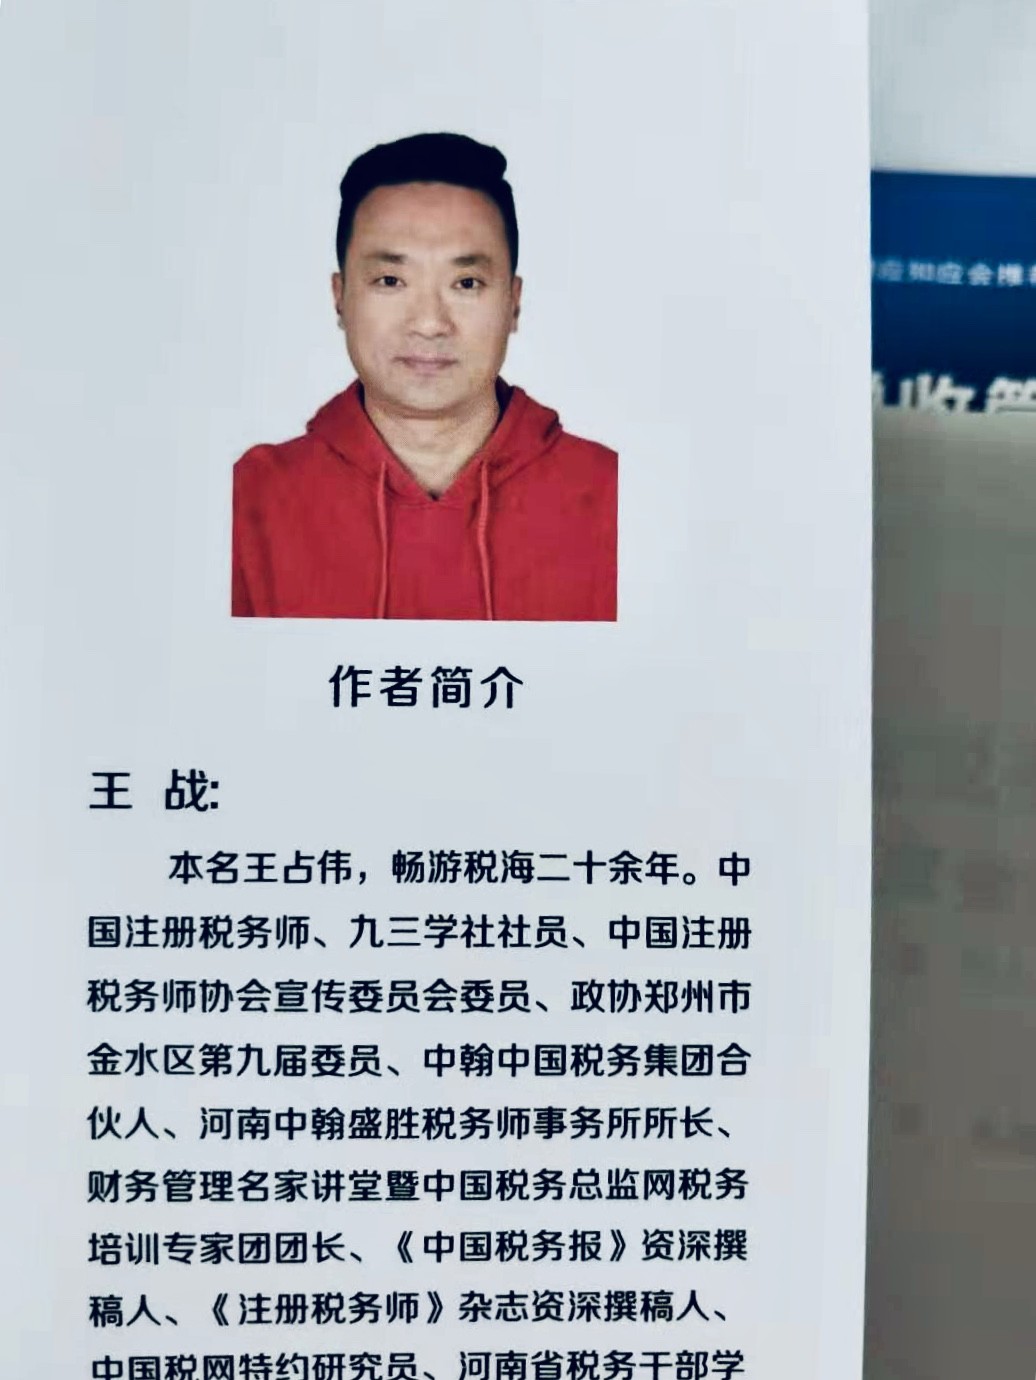 作者简介
王 战:
本名王占伟，畅游税海二十余年。中
国注册税务师、九三学社社员、中国注册
税务师协会宣传委员会委员、政协郑州市
金水区第九届委员、中翰中国税务集团合
伙人、河南中翰盛胜税务师事务所所长、
财务管理名家讲堂暨中国税务总监网税务
培训专家团团长、《中国税务报》资深撰
稿人、《注册税务师》杂志资深撰稿人、
中国税网特约研究员、河南省税务干部学
应知应会推
收管